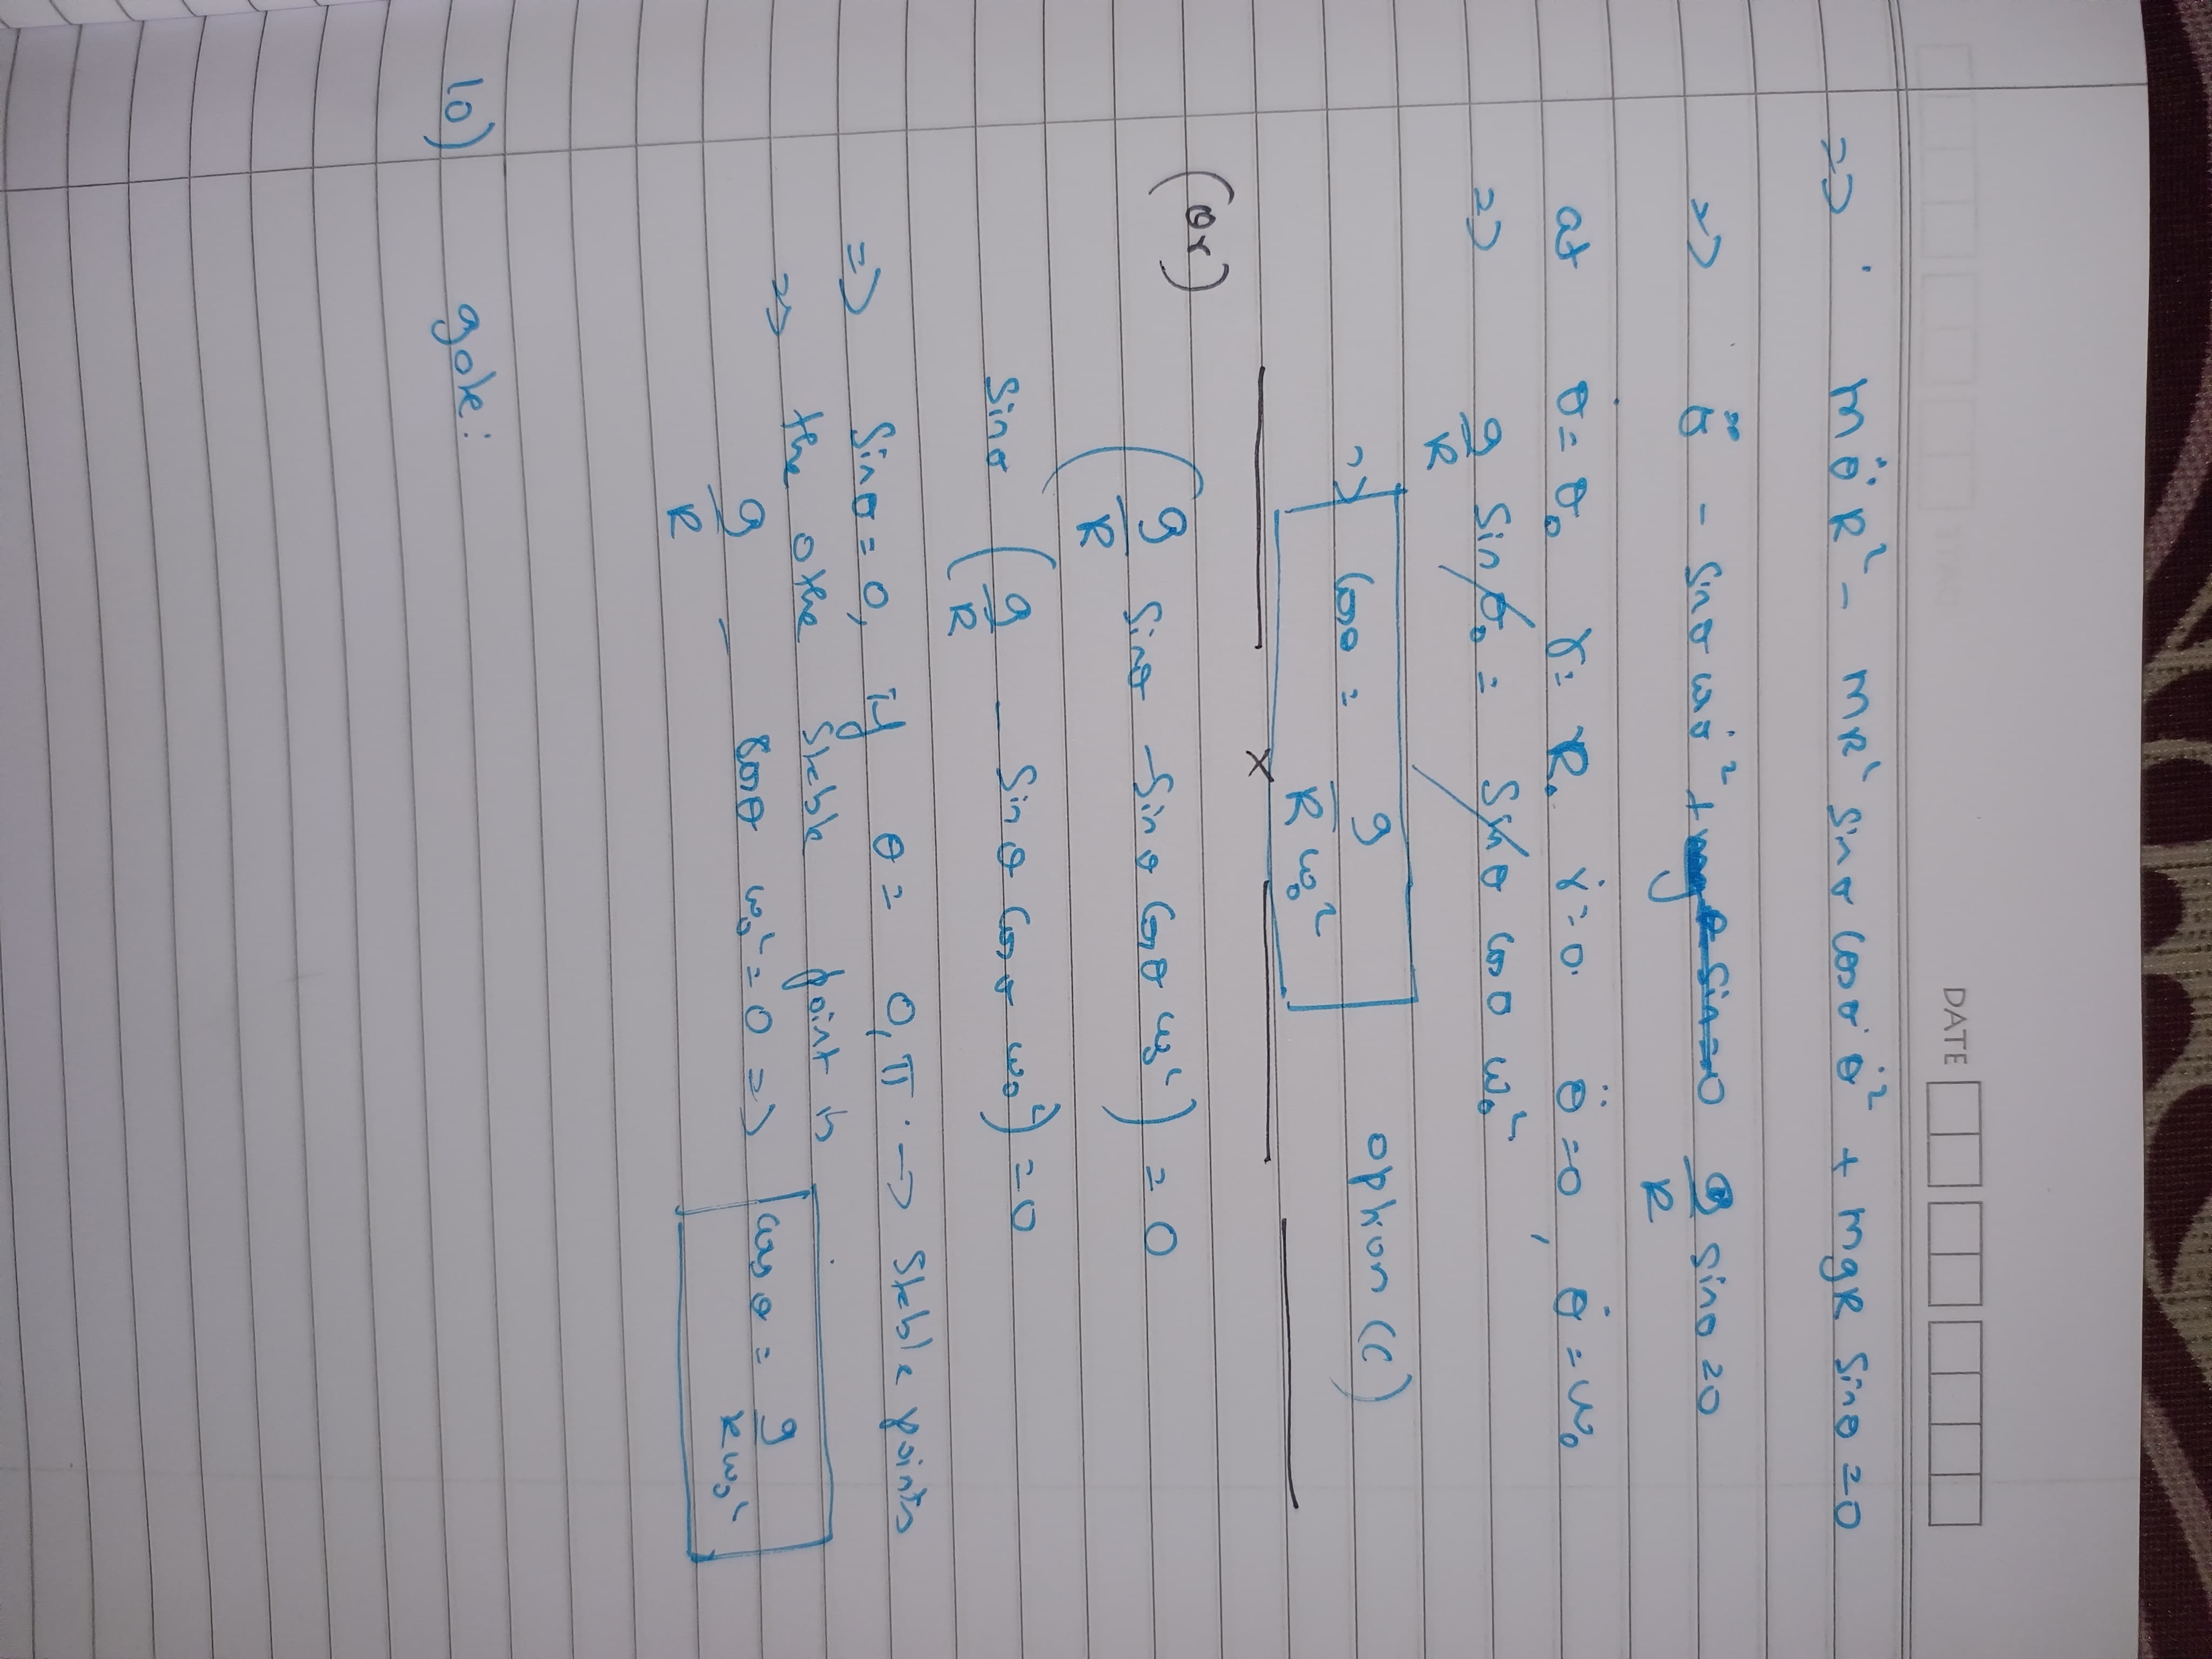 DATE
=> mθ̈R² - mR² sinθ cosθ θ̇² + mgR sinθ = 0
=> θ̈ - sinθ ω₀² + g/R sinθ = 0
at θ = θ₀ r = R. ṙ = 0. θ̈ = 0, θ̇ = ω₀
=> g/R sinθ₀ = sinθ cosθ ω₀²
=> cosθ = g/Rω₀² option (C)
(or)
(g/R sinθ - sinθ cosθ ω₀²) = 0
sinθ (g/R - sinθ cosθ ω₀²) = 0
=> sinθ = 0, if θ = 0, π. → stable points
=> the othe stable point is
g/R - cosθ ω₀² = 0 => cosθ = g/Rω₀²
10) gate: